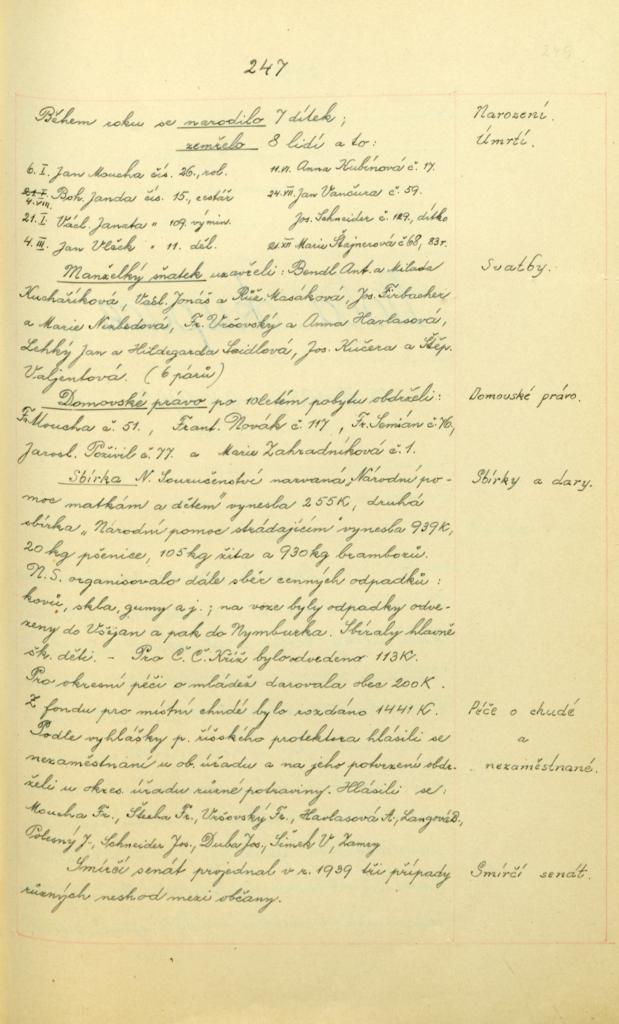 247
Během roku se narodilo 7 dítek;
Narození.
zemřelo 8 lidí a to:
Úmrtí.
6. I. Jan Moucha čís. 26, rol.
11. VI. Anna Kubínová č. 17.
4. VIII. Boh. Janda čís. 15, cestář
24. VII. Jan Vančura č. 59.
21. I. Václ. Janata " 109, výmin.
Jos. Schneider č. 129, dítko
4. III. Jan Vlšek " 11. děl.
21. XII Marie Štajnerová č 68, 83 r.
Manželský sňatek uzavřeli: Bendl Ant. a Milada
Svatby.
Kuchaříková, Václ. Jonáš a Růž. Masáková, Jos. Firbacher
a Marie Nezbedová, Fr. Vršovský a Anna Havlasová,
Lehký Jan a Hildegarda Saidlová, Jos. Kučera a Štěp.
Valjentová. (6 párů)
Domovské právo po 10letém pobytu obdrželi:
Domovské právo.
Fr. Moucha č. 51., Frant. Novák č. 117, Fr. Semián č. 76,
Jarosl. Poživil č. 77. a Marie Zahradníková č. 1.
Sbírka N. Souručenství narvaná „Národní po-
Sbírky a dary.
moc matkám a dětem" vynesla 255 K, druhá
sbírka „Národní pomoc strádajícím" vynesla 939 K,
20 kg pšenice, 105 kg žita a 930 kg bramborů.
N. S. organisovalo dále sběr cenných odpadků:
kovů, skla, gumy a j.; na voze byly odpadky odve-
zeny do Všejan a pak do Nymburka. Sbíraly hlavně
šk. děti. - Pro Č. Č. Kříž bylo odvedeno 113 K.
Pro okresní péči o mládež darovala obec 200 K.
Z fondu pro místní chudé bylo rozdáno 1441 K.
Péče o chudé
Podle vyhlášky p. říšského protektora hlásili se
a
nezaměstnaní u ob. úřadu a na jeho potvrzení obdr-
nezaměstnané.
želi u okres. úřadu různé potraviny. Hlásili se:
Moucha Fr., Štecha Fr., Vršovský Fr., Havlasová A., Langová B.,
Polesný J., Schneider Jos., Duba Jos., Šíněk V.,
Smírčí senát projednal v r. 1939 tři případy
Smírčí senát.
různých neshod mezi občany.